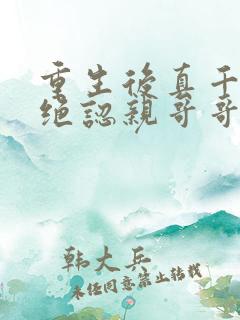 重生後真千
絕認親哥哥
韩大兵
未经同意禁止转载